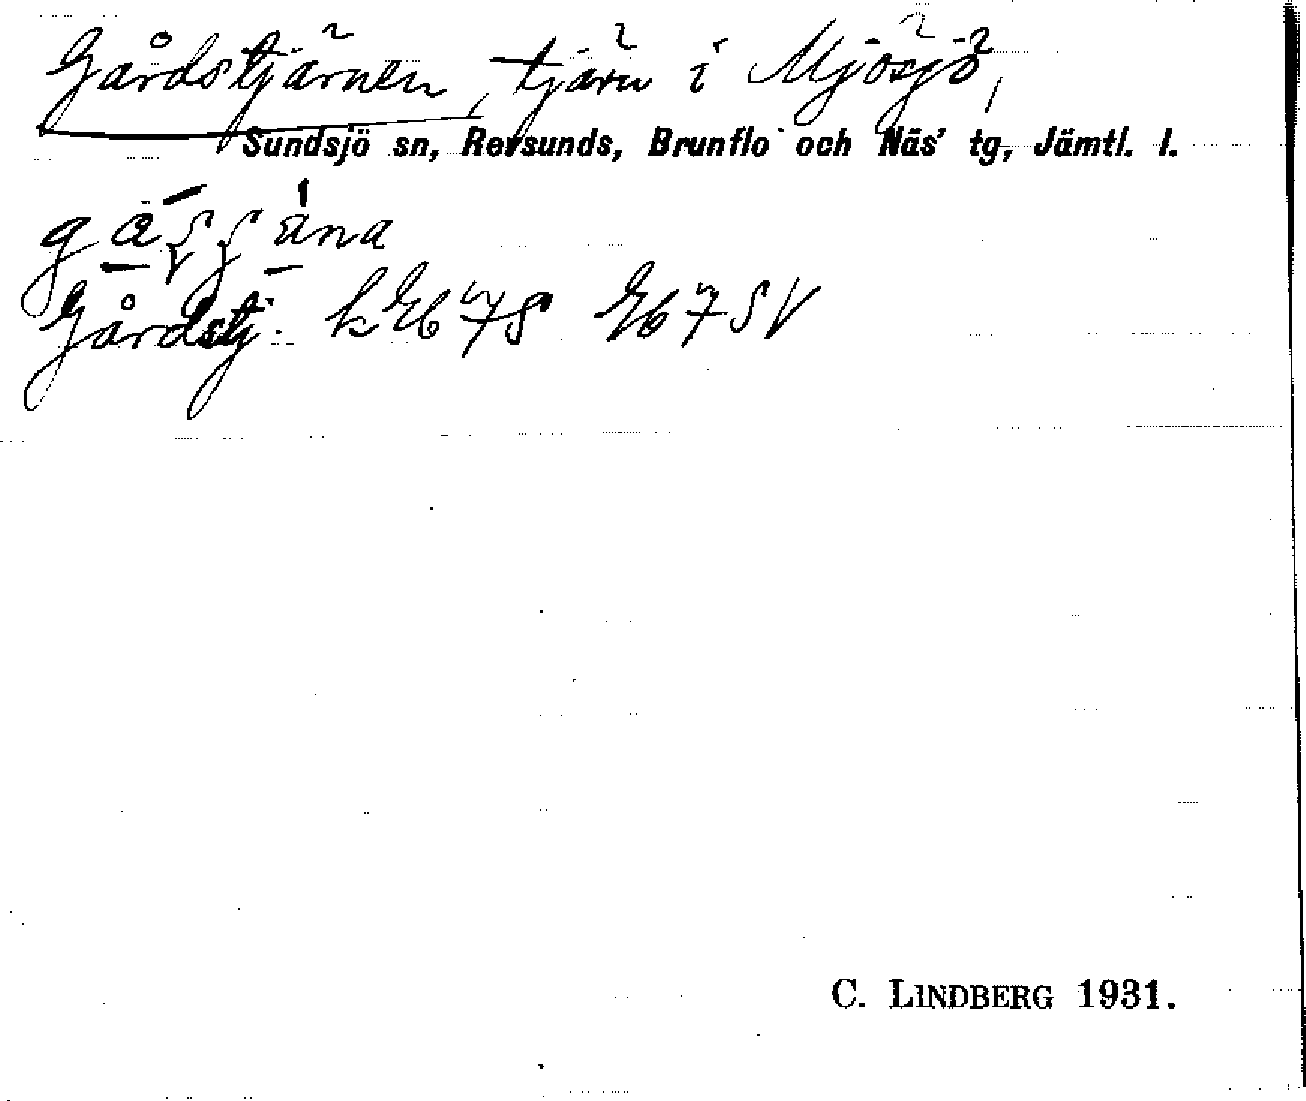 Gårdstjärnen, tjärn i Mjösjö,
Sundsjö sn, Revsunds, Brunflo och Näs' tg, Jämtl. l.
Gårdstj.
C. LINDBERG 1931.